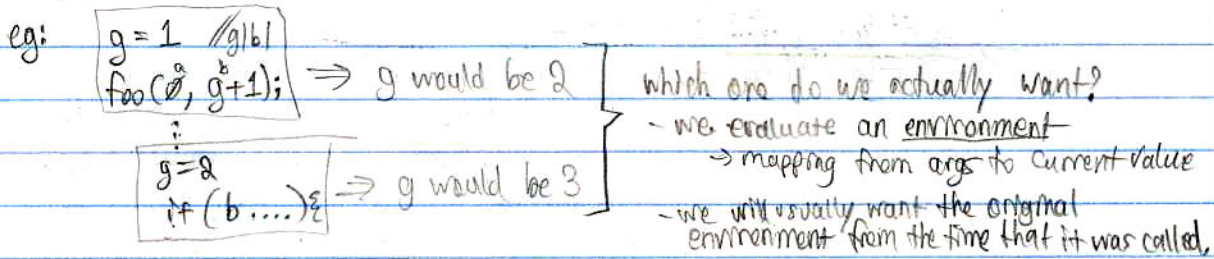 eg:
g = 1 //glbl
foo(0, g+1); ⇒ g would be 2
a b
⋮
g=2
if (b ....){ ⇒ g would be 3
which one do we actually want?
- we evaluate an environment
→ mapping from args to current value
- we will usually want the original
environment from the time that it was called.